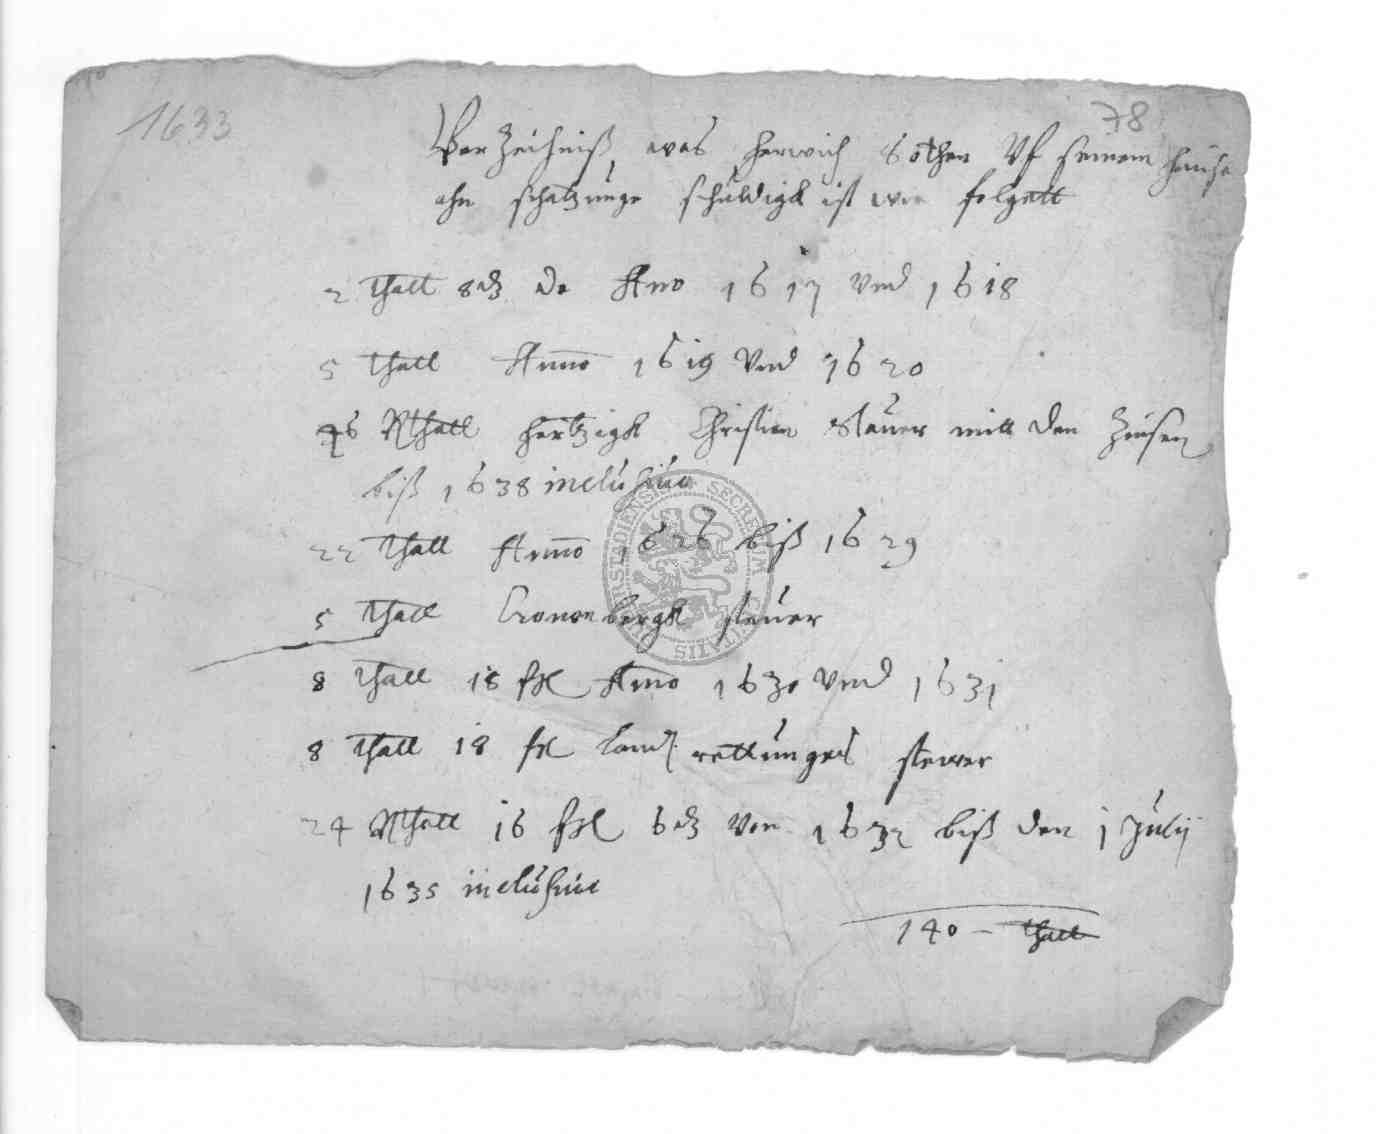 1633
78
Verzeichniß, was herwich Bothen Vf seinem hause
ahn schatzunge schuldigk ist wie folgett
2 thall 8 ₰ de Ano 1617 Vnd 1618
5 thall Anno 1619 Vnd 1620
46 Rthall hertzigk Christian Stauer mitt den Zinsen
biß 1638 inclusiue
22 thall Anno 1626 biß 1629
5 thall Cronenbergk steuer
8 thall 18 ßl Anno 1630 Vnd 1631
8 thall 18 ßl land rettunges stewer
24 Rthall 16 ßl 6 ₰ Von 1632 biß den 1 Julij
1635 inclusiue
140 - thall
SECRETUM